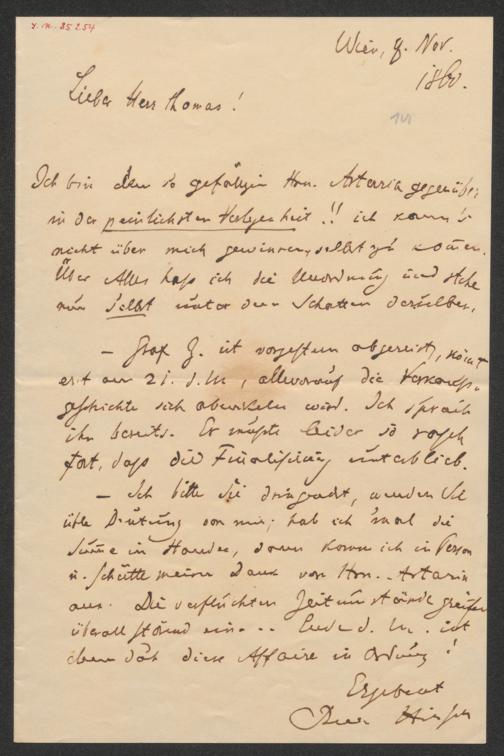 I.N. 35254
Wien, 8. Nov.
1860.
Lieber Herr Thomas!
Ich bin dem so gefälligen Hrn. Artaria gegenüber
in der peinlichsten Verlegenheit!! ich kann's
nicht über mich gewinnen, selbst zu kommen.
Über Alles haß ich die Unordnung und stehe
nun selbst unter dem Schatten derselben.
– Graf Z. ist vorgestern abgereist, kömt
erst am 21. d. M., allworauf die Verkaufs-
geschichte sich abwickeln wird. Ich sprach
ihn bereits. Er mußte leider so rasch
fort, daß die Finalisirung unterblieb.
– Ich bitte Sie dringendst, wenden Sie
üble Deutung von mir; hab ich 'mal die
Summe in Handen, dann komm ich in Person
u. schütte meinen Dank vor Hrn. Artaria
aus. Die verfluchten Zeitumstände greifen
überall störend ein... Ende d. M. ist
eben diese Affaire in Ordnung!
Ergebenst